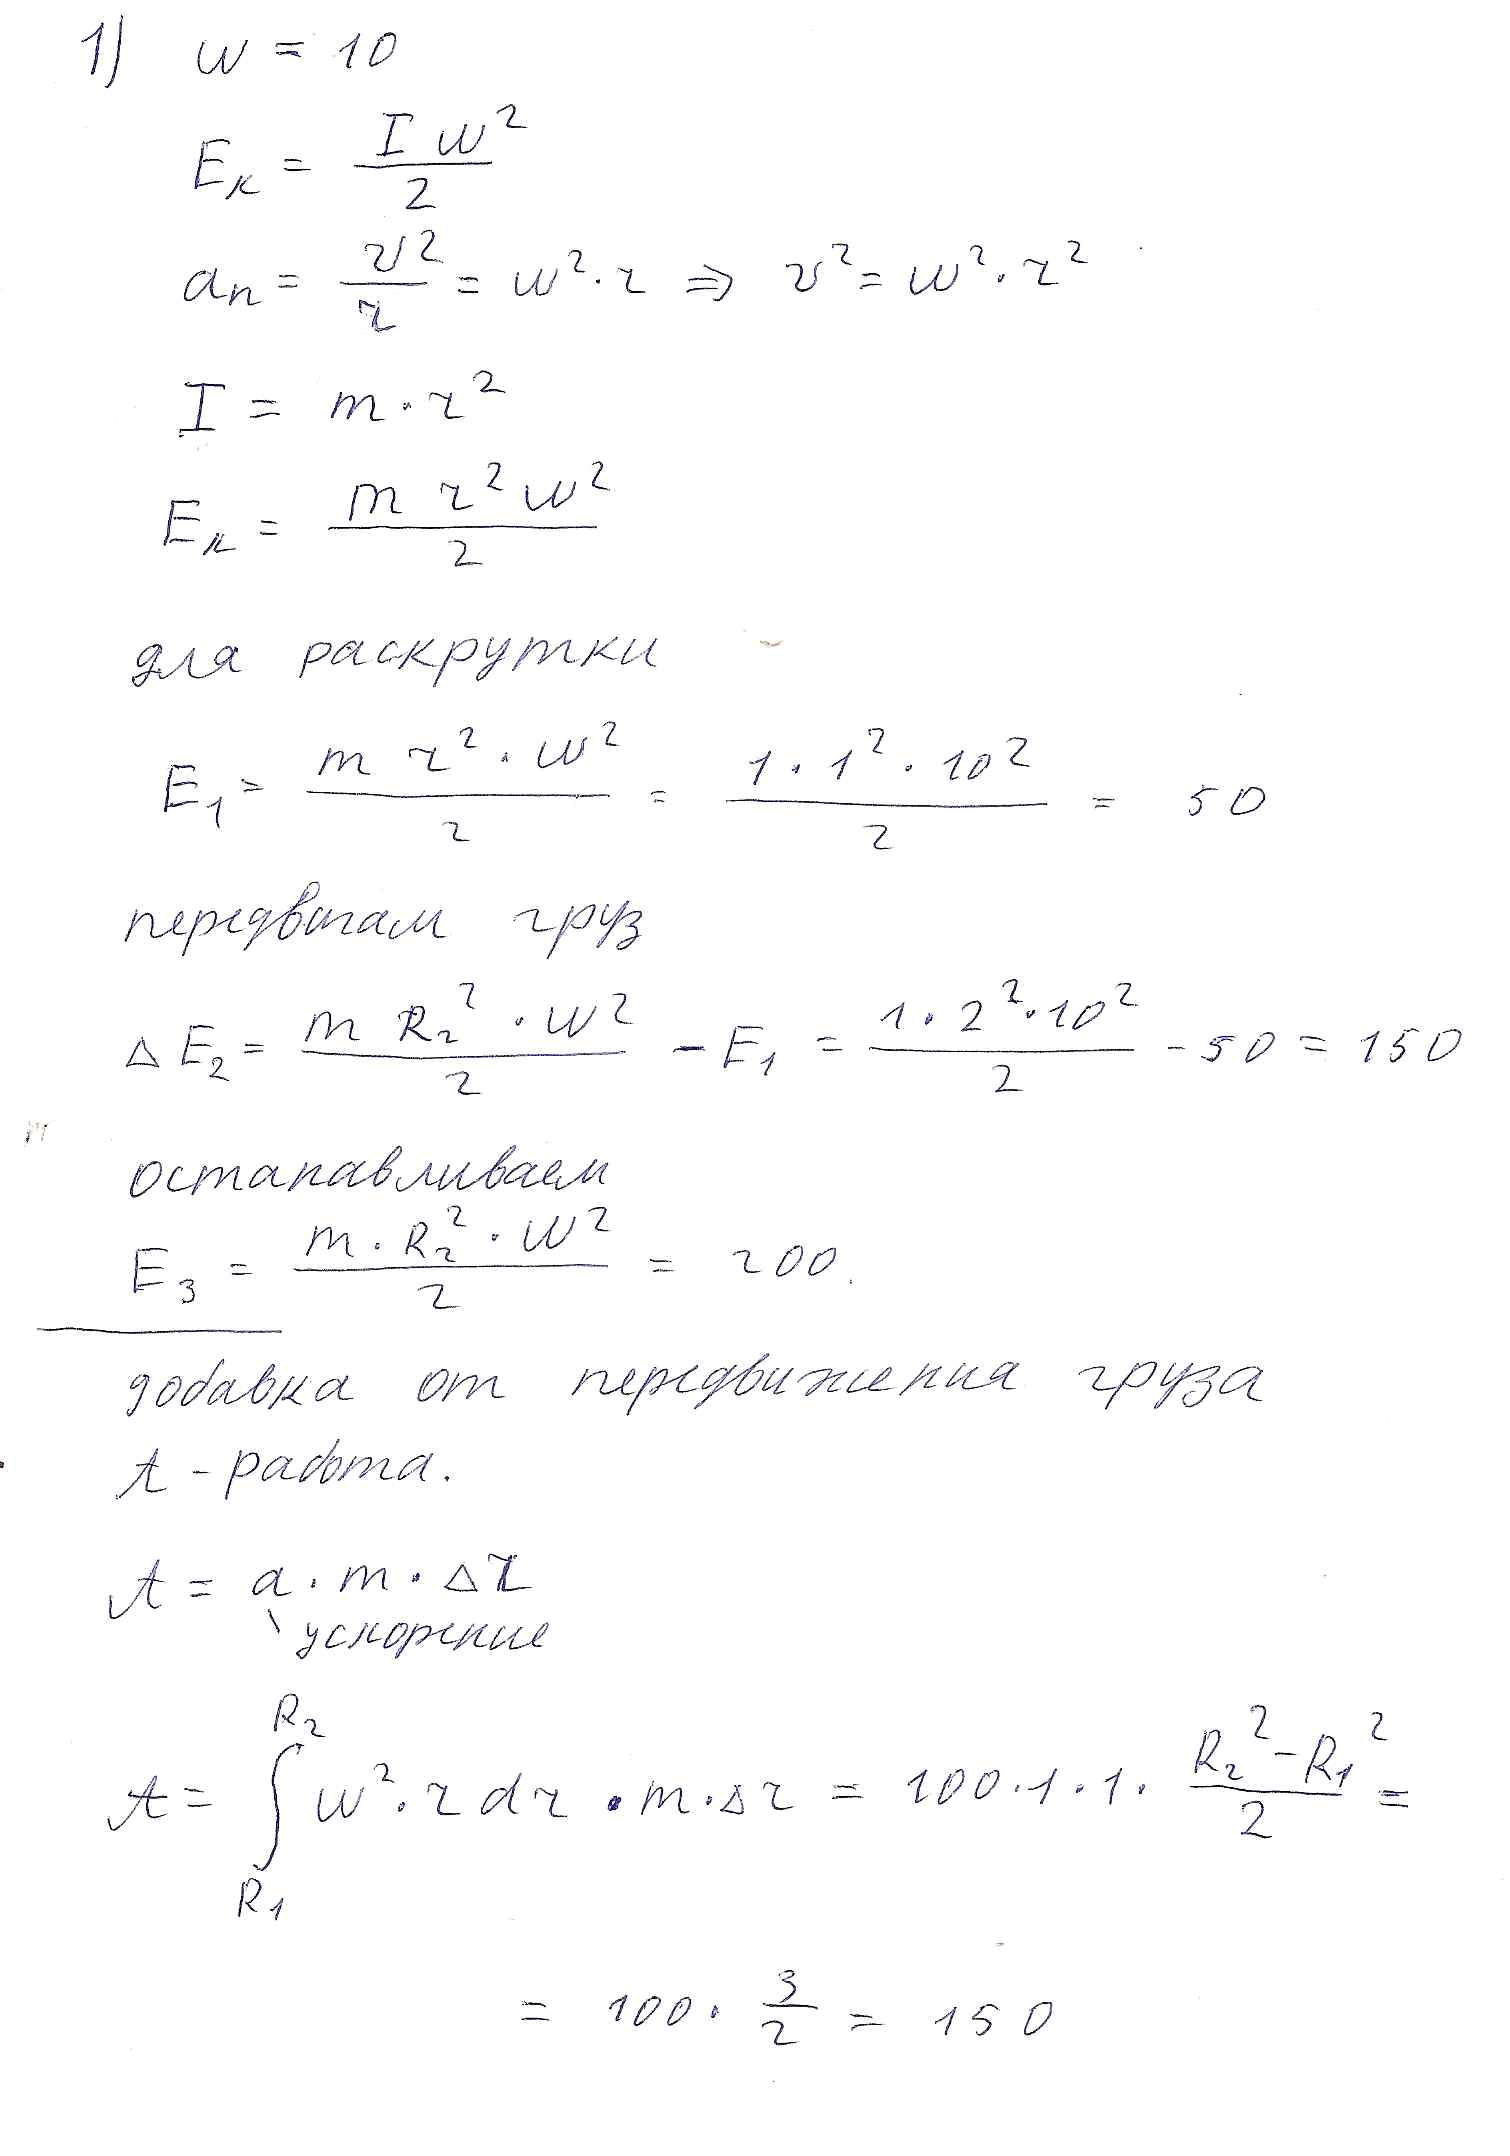 1) w = 10
Eк = I w² / 2
aп = v² / r = w² · r ⇒ v² = w² · r²
I = m · r²
Eк = m r² w² / 2
для раскрутки
E₁ = m r² · w² / 2 = 1 · 1² · 10² / 2 = 50
передвигаем груз
Δ E₂ = m R₂² · w² / 2 - E₁ = 1 · 2² · 10² / 2 - 50 = 150
останавливаем
E₃ = m · R₂² · w² / 2 = 200.
добавка от передвижения груза
A - работа.
A = a · m · Δr
ускорение
A = ∫ R₁ R₂ w² · r dr · m · Δr = 100 · 1 · 1 · R₂² - R₁² / 2 =
= 100 · 3 / 2 = 150